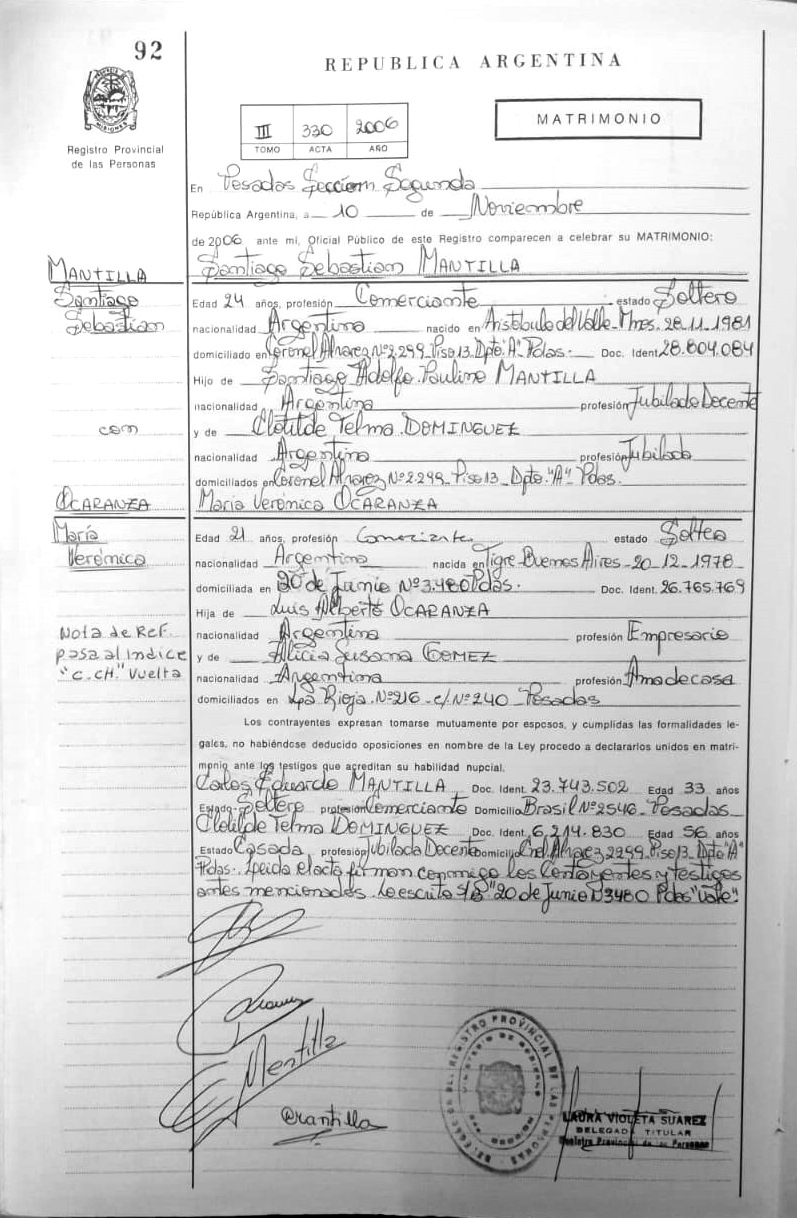 92
REPUBLICA ARGENTINA
MISIONES
Registro Provincial
de las Personas
III 330 2006
TOMO ACTA AÑO
MATRIMONIO
En Posadas Sección Segunda
República Argentina, a 10 de Noviembre
de 2006 ante mi, Oficial Público de este Registro comparecen a celebrar su MATRIMONIO:
Santiago Sebastian MANTILLA
MANTILLA
Santiago
Sebastian
con
OCARANZA
María
Verónica
Nota de Ref.
pasa al Indice
"C.CH." Vuelta
Edad 24 años, profesión Comerciante estado Soltero
nacionalidad Argentina nacido en Aristobulo del Valle-Mnes. 28-11-1981
domiciliado en Coronel Alvarez Nº2.299-Piso 13-Dpto."A" Pdas.- Doc. Ident. 28.804.084
Hijo de Santiago Adolfo Paulino MANTILLA
nacionalidad Argentina profesión Jubilado Docente
y de Clotilde Telma DOMINGUEZ
nacionalidad Argentina profesión Jubilada
domiciliados en Coronel Alvarez Nº2.299-Piso 13-Dpto."A"-Pdas.
María Verónica OCARANZA
Edad 21 años, profesión Comerciante estado Soltera
nacionalidad Argentina nacida en Tigre-Buenos Aires-20-12-1978
domiciliada en 20 de Junio Nº3.480 Pdas. Doc. Ident. 26.765.769
Hija de Luis Alberto OCARANZA
nacionalidad Argentina profesión Empresario
y de Alicia Susana GOMEZ
nacionalidad Argentina profesión Ama de casa
domiciliados en La Rioja Nº216-c/Nº240-Posadas
Los contrayentes expresan tomarse mutuamente por esposos, y cumplidas las formalidades le-
gales, no habiéndose deducido oposiciones en nombre de la Ley procedo a declararlos unidos en matri-
monio ante los testigos que acreditan su habilidad nupcial.
Carlos Eduardo MANTILLA Doc. Ident. 23.743.502 Edad 33 años
Estado Soltero profesión Comerciante Domicilio Brasil Nº2546-Posadas
Clotilde Telma DOMINGUEZ Doc. Ident. 6.214.830 Edad 56 años
Estado Casada profesión Jubilada Docente Domicilio Cnel. Alvarez 2299-Piso 13-Dpto"A"
Pdas.- Leida el acta firman conmigo los Contrayentes y testigos
antes mencionados. Lo escrito s/b "20 de Junio Nº3480 Pdas "Vale".
Mantilla
LAURA VIOLETA SUAREZ
DELEGADA TITULAR
Registro Provincial de las Personas